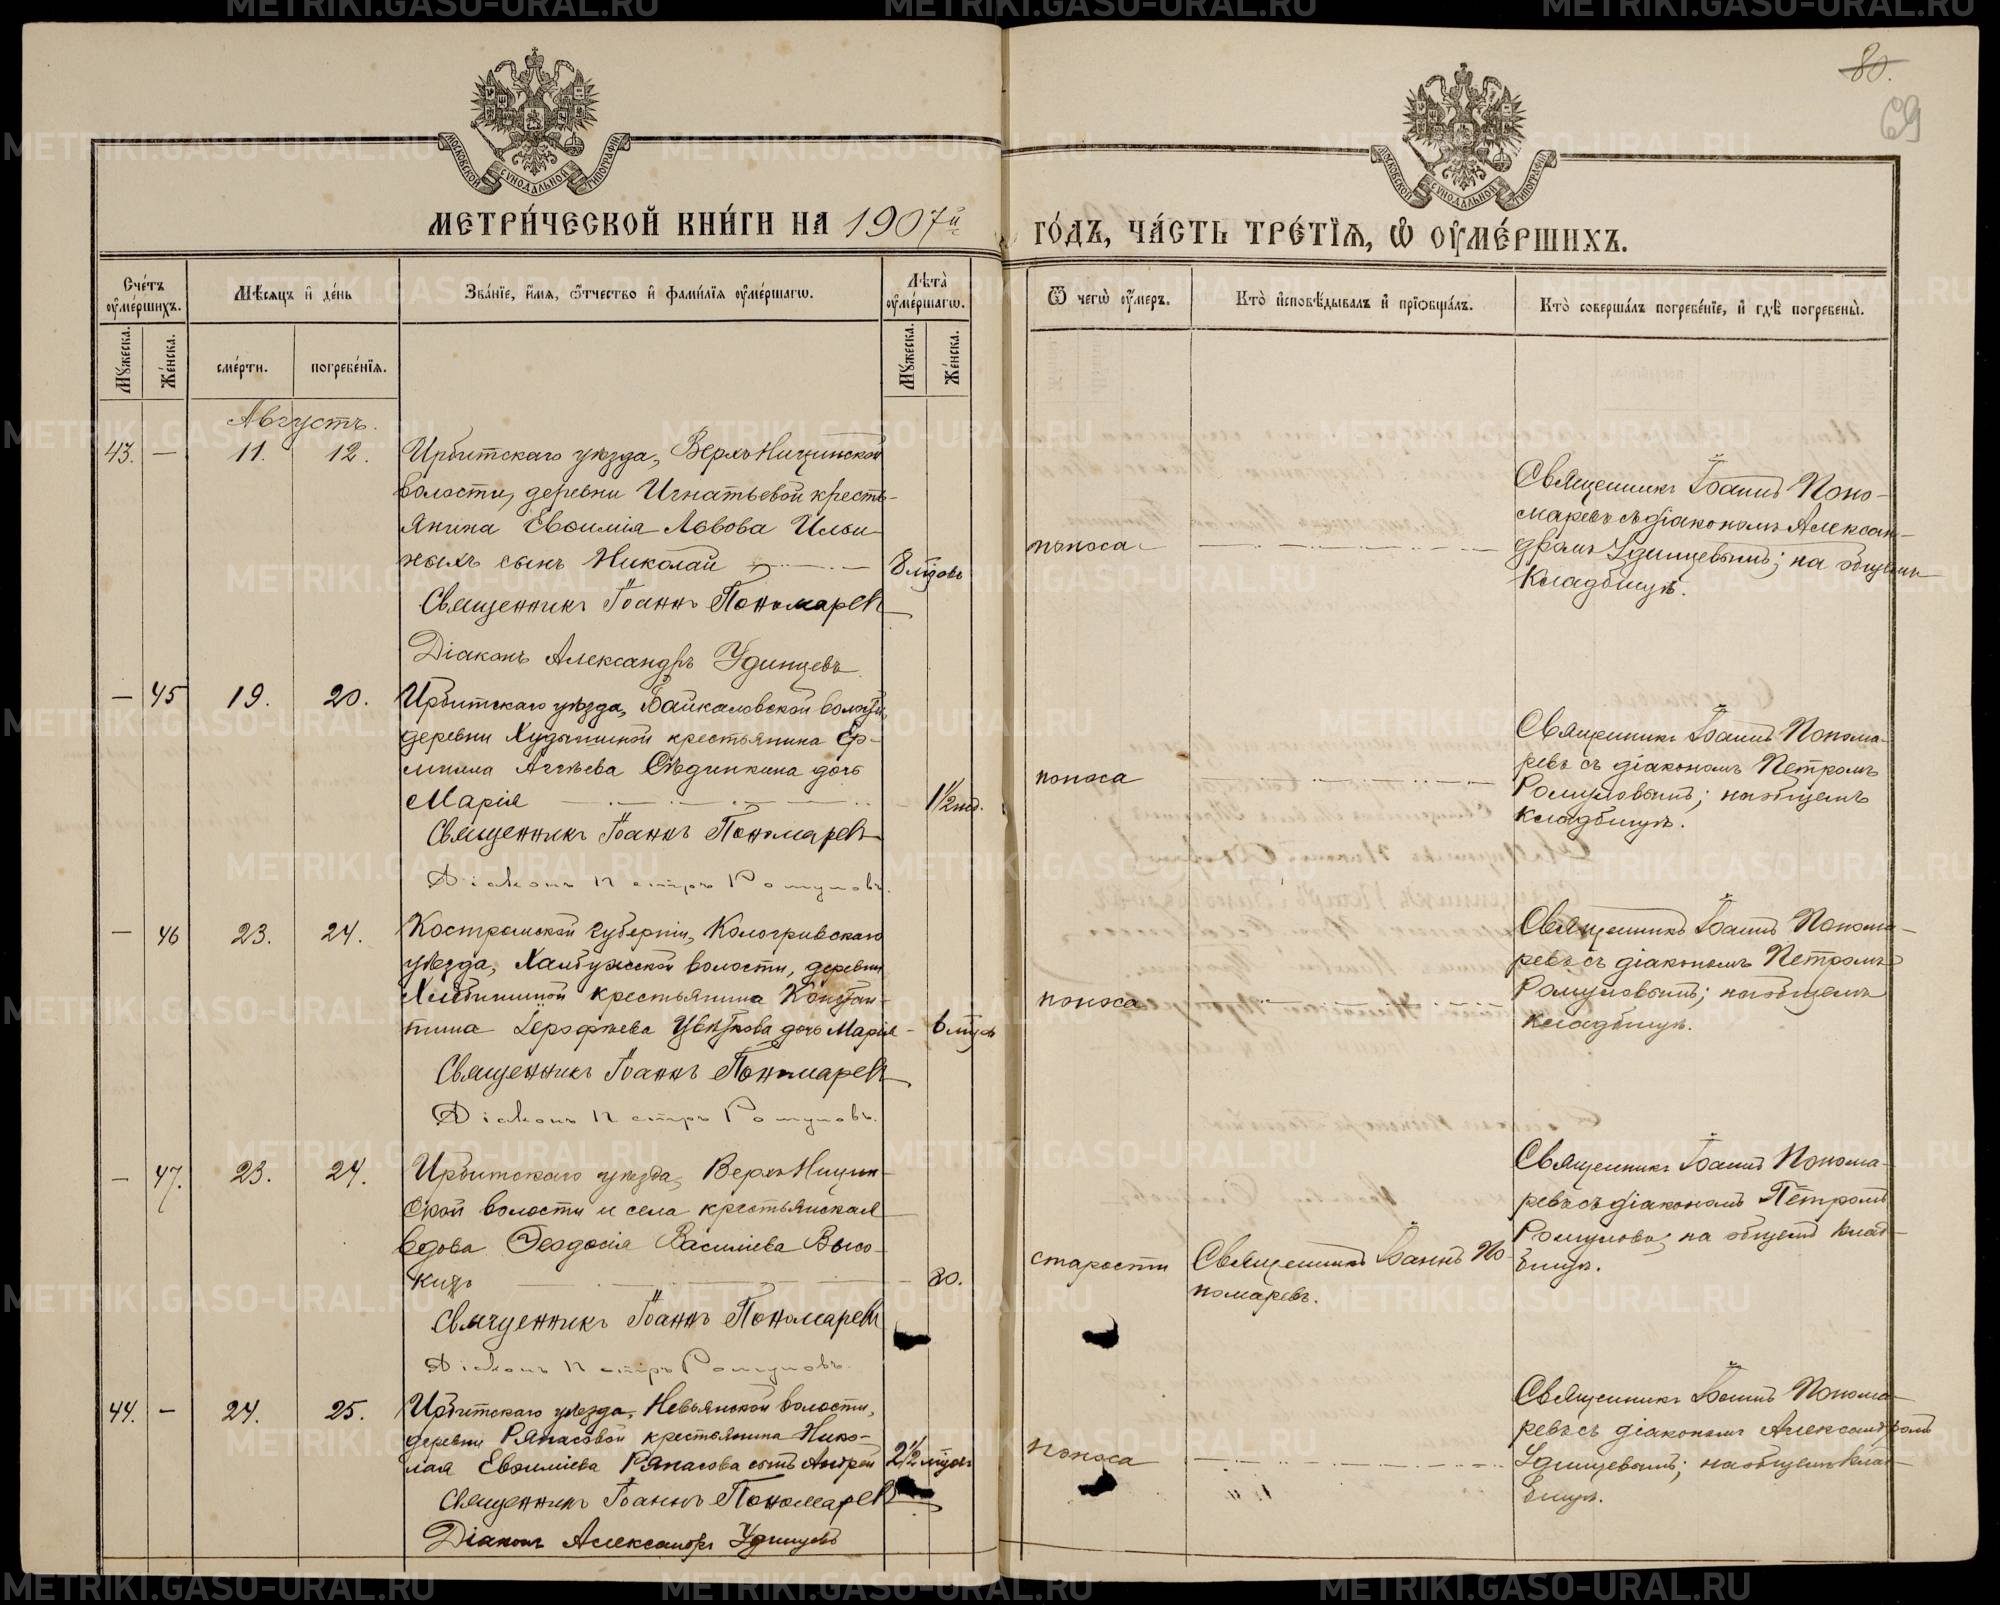 80.
69
МОСКОВСКОЙ СѴНОДАЛЬНОЙ ТИПОГРАФІИ
МОСКОВСКОЙ СѴНОДАЛЬНОЙ ТИПОГРАФІИ
МЕТРИ́ЧЕСКОЙ КНИ́ГИ НА 1907й
ГО́ДЪ, ЧА́СТЬ ТРЕ́ТІѦ, Ѡ ОУ҆МЕ́РШИХЪ.
Сче́тъ оу҆ме́ршихъ.
Мѣсяцъ и҆ де́нь
Зва́нїе, и҆́мя, ѻ҆́тчество и҆ фами́лїя оу҆ме́ршагѡ.
Лѣта̀ оу҆ме́ршагѡ.
Ѿ чегѡ̀ оу҆́меръ.
Кто̀ и҆сповѣ́дывалъ и҆ прїѡбща́лъ.
Кто̀ соверша́лъ погребе́нїе, и҆ гдѣ̀ погребены̀.
Мꙋ́жеска.
Же́нска.
сме́рти.
погребе́нїѧ.
Мꙋ́жеска.
Же́нска.
Августъ.
43. — 11. 12. Ирбитскаго уѣзда, Верхъ-Ницинской
волости, деревни Игнатьевой кресть-
янина Евѳимія Львова Ильи-
ныхъ сынъ Николай
8 мѣсяц
Священникъ Іоаннъ Пономаревъ
Діаконъ Александръ Удинцевъ
поноса
Священникъ Іоаннъ Поно-
маревъ съ діакономъ Алексан-
дромъ Удинцевымъ; на общемъ
кладбищѣ.
— 45 19. 20. Ирбитскаго уѣзда, Байкаловской волости,
деревни крестьянина Ер-
мила Аггѣева Сѣдункина дочь
Марія
1½ нед.
Священникъ Іоаннъ Пономаревъ
Діаконъ Петръ Ромуловъ.
поноса
Священникъ Іоаннъ Понома-
ревъ съ діакономъ Петромъ
Ромуловымъ; на общемъ
кладбищѣ.
— 46 23. 24. Костромской губерніи, Кологривскаго
уѣзда, Халбужской волости, деревни
крестьянина Констан-
тина Ерофѣева Цвѣткова дочь Марія
6 мѣсяц
Священникъ Іоаннъ Пономаревъ
Діаконъ Петръ Ромуловъ.
поноса
Священникъ Іоаннъ Понома-
ревъ съ діакономъ Петромъ
Ромуловымъ; на общемъ
кладбищѣ.
— 47. 23. 24. Ирбитскаго уѣзда, Верхъ-Ницин-
ской волости и села крестьянская
вдова Ѳеодосія Василіева Высо-
кихъ
80.
Священникъ Іоаннъ Пономаревъ
Діаконъ Петръ Ромуловъ.
старости
Священникъ Іоаннъ По-
номаревъ.
Священникъ Іоаннъ Понома-
ревъ съ діакономъ Петромъ
Ромуловы; на общемъ клад-
бищѣ.
44. — 24. 25. Ирбитскаго уѣзда, Невьянской волости,
деревни Ряпасовой крестьянина Нико-
лая Евѳиміева Ряпасова сынъ Андрей
2½ мѣсяц
Священникъ Іоаннъ Пономаревъ
Діаконъ Александръ Удинцевъ
поноса
Священникъ Іоаннъ Понома-
ревъ съ діакономъ Александромъ
Удинцевымъ; на общемъ клад-
бищѣ.
METRIKI.GASO-URAL.RU